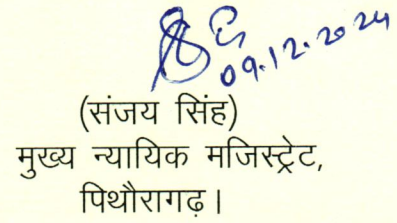 09.12.2024
(संजय सिंह)
मुख्य न्यायिक मजिस्ट्रेट,
पिथौरागढ़।